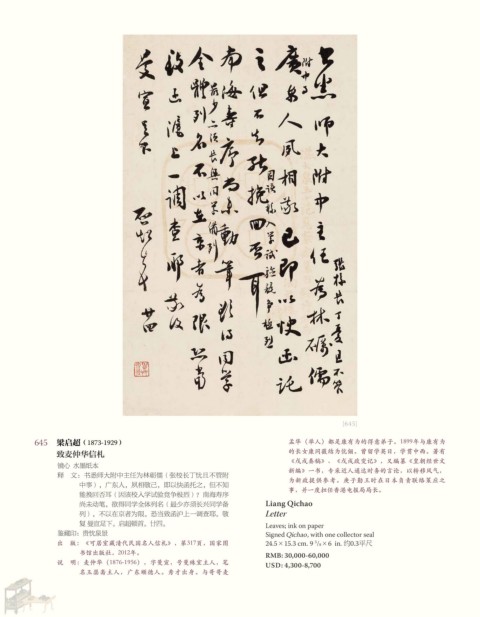 書悉師大附中主任為林礪儒
張校長丁憂且不管
附中事
廣東人夙相敬已即以快函託
之但不知能挽回否耳
因該校入學試驗競爭極烈
南海壽序尚未動筆欲得同學
最少亦須長興同學備列
全體列名不以在京者為限恐當
致函滬上一調查耶 敬復
曼宣足下
啟超頓首 廿四
(645)
645 梁启超（1873-1929）
致麦仲华信札
镜心 水墨纸本
释 文：书悉师大附中主任为林砺儒（张校长丁忧且不管附
中事），广东人，夙相敬已，即以快函托之，但不知
能挽回否耳（因该校入学试验竞争极烈）？南海寿序
尚未动笔，欲得同学全体列名（最少亦须长兴同学备
列），不以在京者为限，恐当致函沪上一调查耶，敬
复 曼宣足下，启超顿首。廿四。
鉴藏印：曾忱泉景
出 版：《可居室藏清代民国名人信札》，第317页，国家图
书馆出版社，2012年。
说 明：麦仲华（1876-1956），字曼宣，号曼殊室主人、笔
名玉瑟斋主人，广东顺德人。秀才出身，与哥哥麦
孟华（举人）都是康有为的得意弟子。1899年与康有为
的长女康同薇结为伉俪。曾留学英日，学贯中西，著有
《戊戌奏稿》、《戊戌政变记》，又编纂《皇朝经世文
新编》一书，专采近人通达时务的言论，以转移风气，
为新政提供参考。庚子勤王时在日本负责联络策应之
事，并一度担任香港电报局局长。
Liang Qichao
Letter
Leaves; ink on paper
Signed Qichao, with one collector seal
24.5 × 15.3 cm. 9 5/8 × 6 in. 约0.3平尺
RMB: 30,000-60,000
USD: 4,300-8,700